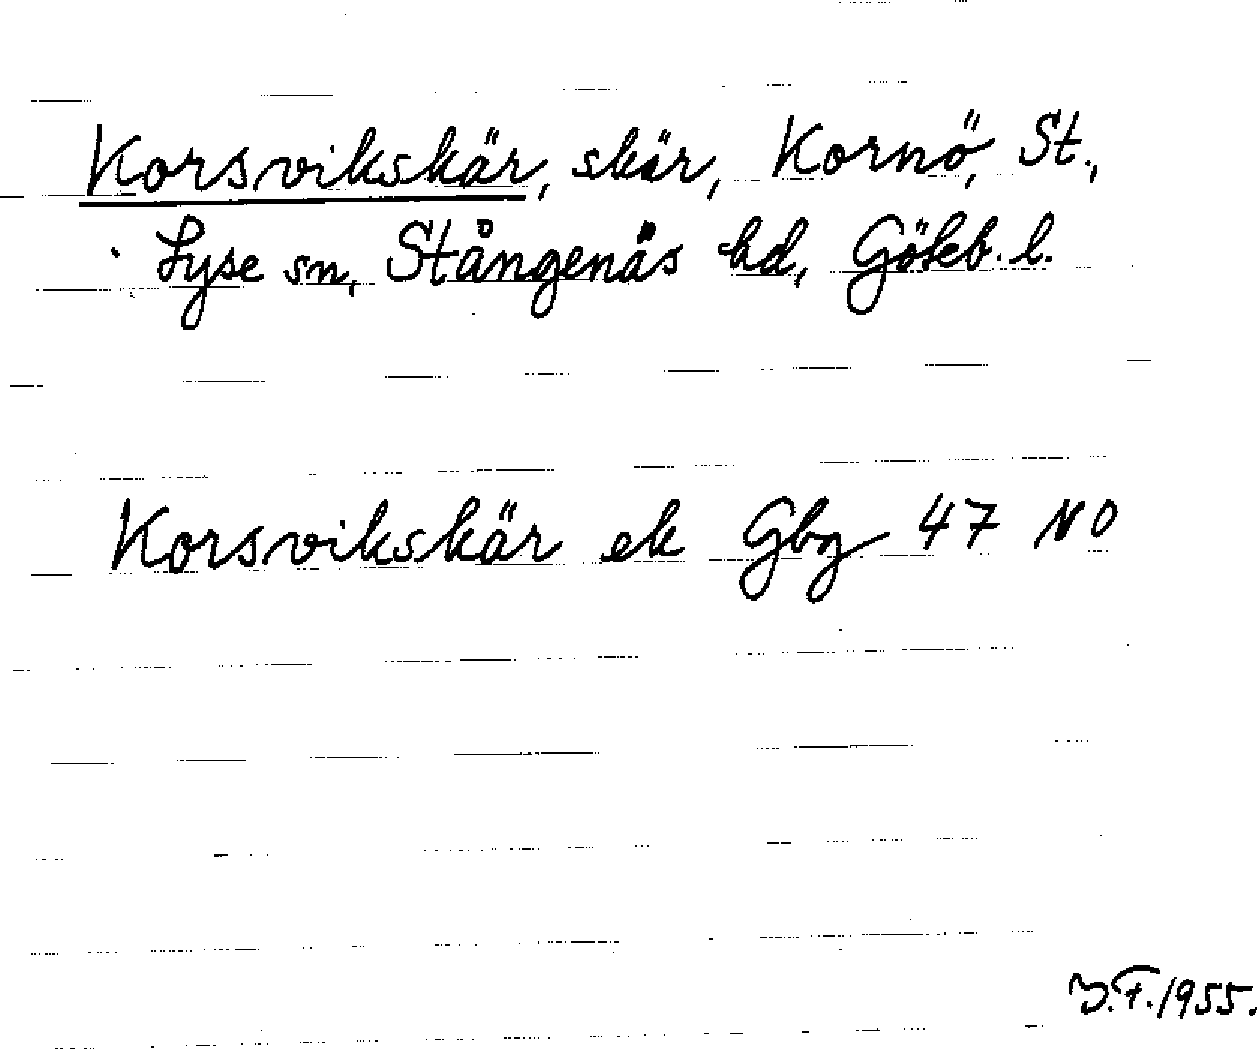 Korsvikskär, skär, Kornö, St.,
Lyse sn, Stångenäs hd, Göteb. l.
Korsvikskär ek Gbg 47 NO
I.F. 1955.